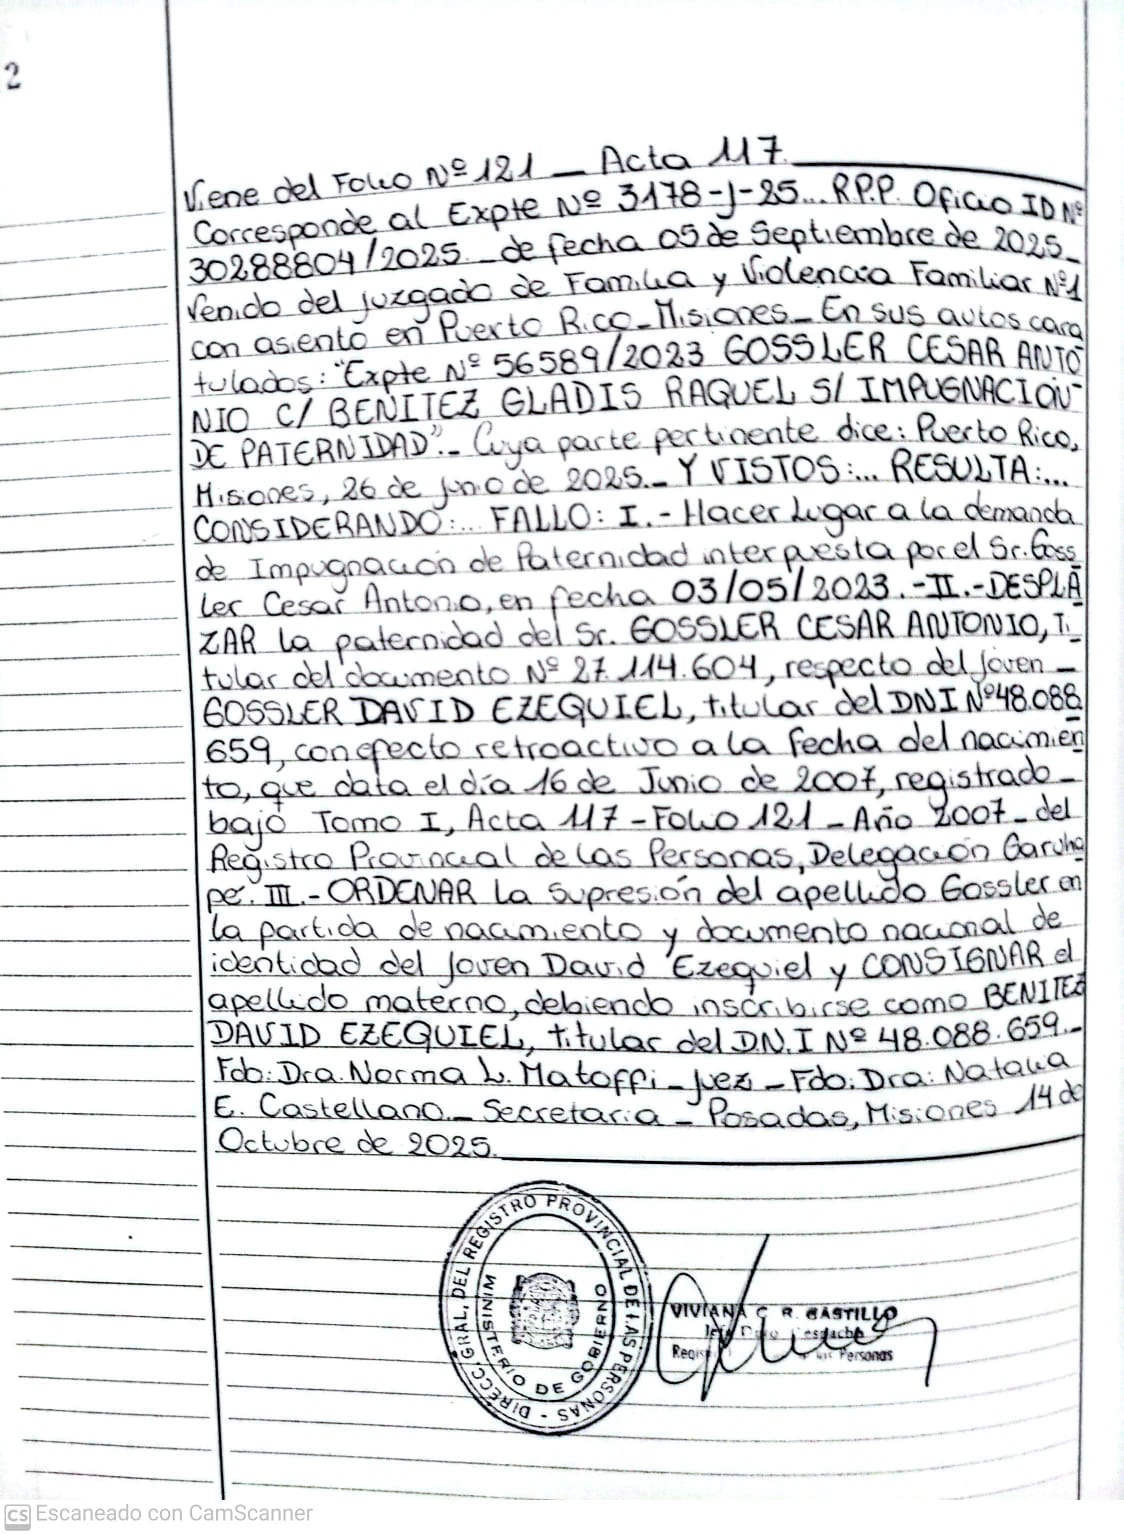 2
Viene del Folio Nº 121 _ Acta 117.
Corresponde al Expte Nº 3178-J-25... R.P.P. Oficio ID Nº
30288804/2025. _ de fecha 05 de Septiembre de 2025_
Venido del juzgado de Familia y Violencia Familiar Nº1
con asiento en Puerto Rico_Misiones_ En sus autos cara
tulados: "Expte Nº 56589/2023 GOSSLER CESAR ANTO
NIO C/ BENITEZ GLADIS RAQUEL S/ IMPUGNACIÓN
DE PATERNIDAD"._ Cuya parte pertinente dice: Puerto Rico,
Misiones, 26 de junio de 2025._ Y VISTOS:... RESULTA:...
CONSIDERANDO:... FALLO: I.- Hacer Lugar a la demanda
de Impugnación de Paternidad interpuesta por el Sr. Goss
ler Cesar Antonio, en fecha 03/05/2023.-II.-DESPLA
ZAR la paternidad del Sr. GOSSLER CESAR ANTONIO, Ti_
tular del documento Nº 27.114.604, respecto del joven _
GOSSLER DAVID EZEQUIEL, titular del DNI Nº48.088
659, con efecto retroactivo a la fecha del nacimien
to, que data el día 16 de Junio de 2007, registrado _
bajo Tomo I, Acta 117 - Folio 121 - Año 2007 _ del
Registro Provincial de las Personas, Delegación Garuha
pé. III.- ORDENAR la supresión del apellido Gossler en
la partida de nacimiento y documento nacional de
identidad del joven David Ezequiel y CONSIGNAR el
apellido materno, debiendo inscribirse como BENITEZ
DAVID EZEQUIEL, titular del D.N.I Nº 48.088.659._
Fdo: Dra. Norma L. Matoffi _ Juez _ Fdo: Dra: Natalia
E. Castellano._ Secretaria _ Posadas, Misiones 14 de
Octubre de 2025.
DIRECC. GRAL. DEL REGISTRO PROVINCIAL DE LAS PERSONAS -
MINISTERIO DE GOBIERNO
VIVIANA C. R. CASTILLO
Personas
CS Escaneado con CamScanner